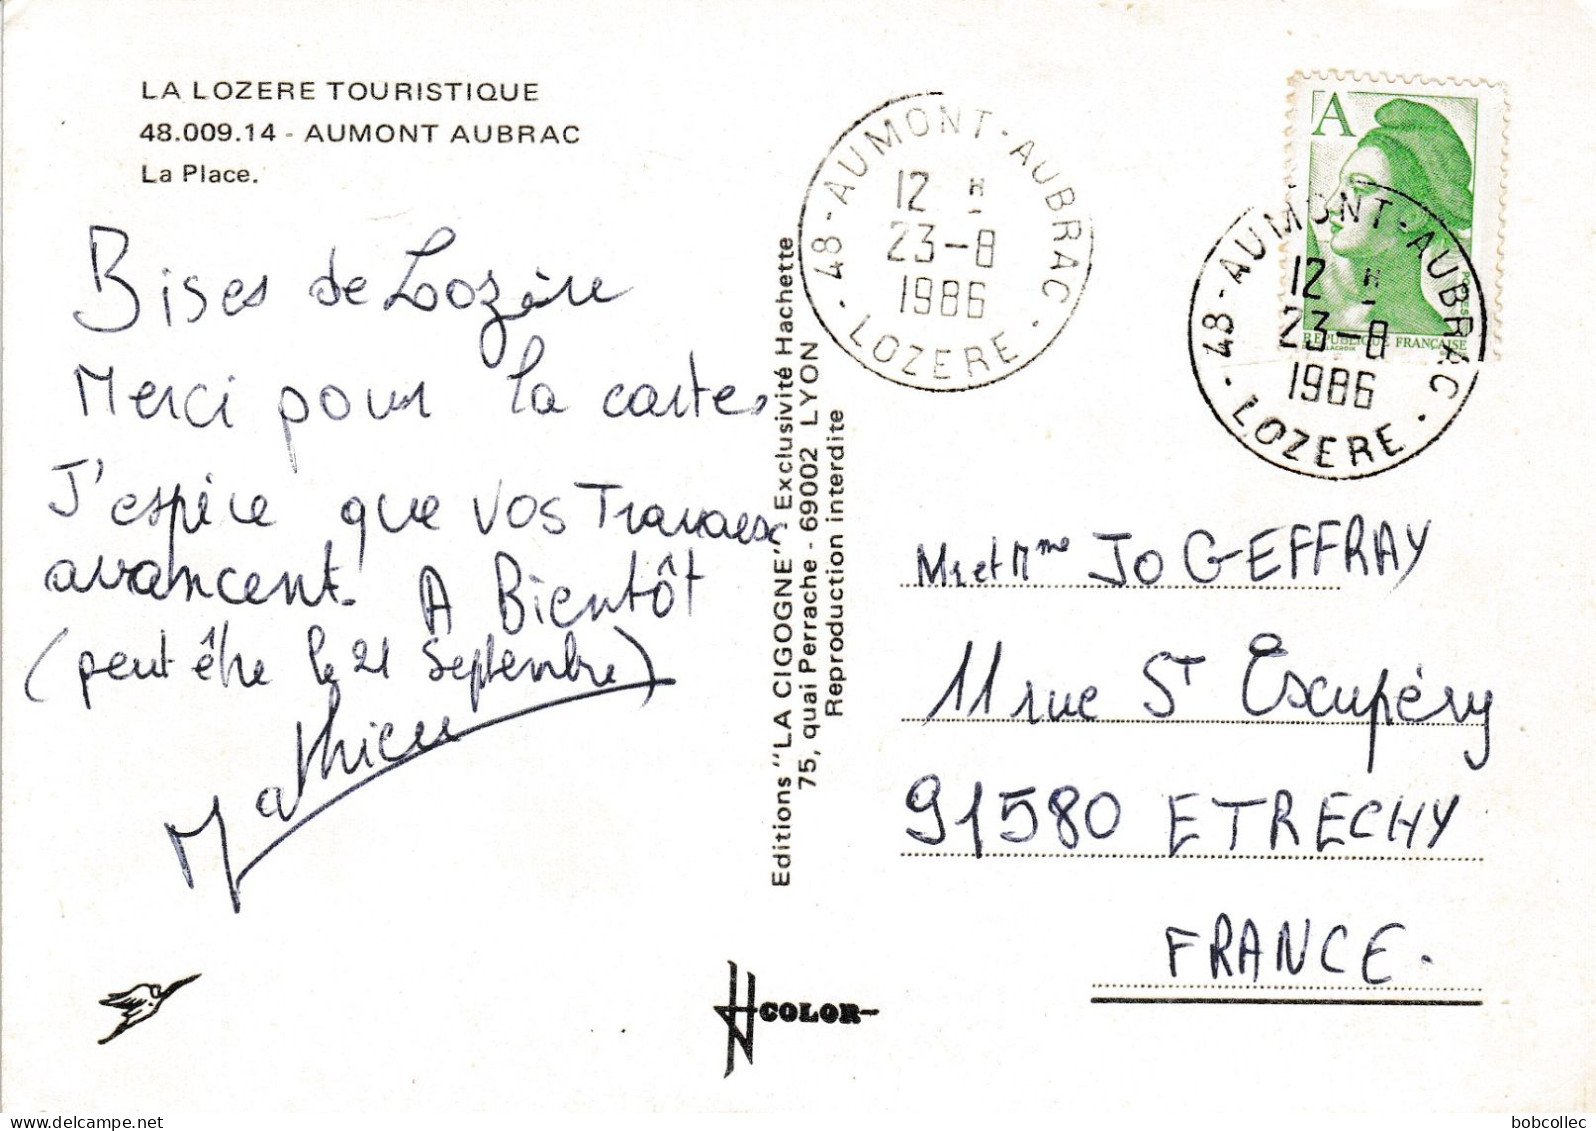 LA LOZERE TOURISTIQUE
48.009.14 - AUMONT AUBRAC
La Place.
Bises de Lozère
Merci pour la carte,
J'espère que vos Travaux
avancent. A Bientôt
(peut être le 21 Septembre)
Mathieu
Editions "LA CIGOGNE" - Exclusivité Hachette
75, quai Perrache - 69002 LYON
Reproduction interdite
COLOR
48 - AUMONT-AUBRAC
12 H
23-8
1986
LOZERE
A
POSTES
REPUBLIQUE FRANÇAISE
48 - AUMONT-AUBRAC
12 H
23-8
1986
LOZERE
Mr et Mme JO GEFFRAY
11 rue St Exupéry
91580 ETRECHY
FRANCE.
bobcollec